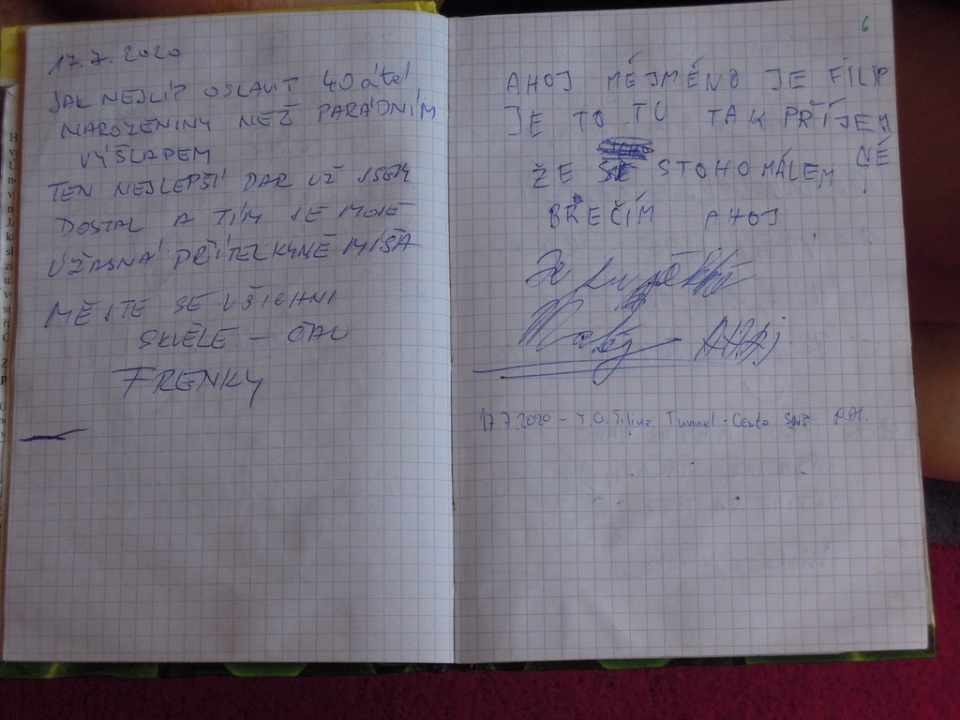 17.7.2020
JAK NEJLÍP OSLAVIT 40áté
NAROZENINY NEŽ PARÁDNÍM
VÝŠLAPEM
TEN NEJLEPŠÍ DAR UŽ JSEM
DOSTAL A TÍM JE MOJE
ÚŽASNÁ PŘÍTELKYNĚ MÍŠA
MĚJTE SE VŠICHNI
SKVĚLE – ČAU
FRENKY
6
AHOJ MÉJMÉNO JE FILIP
JE TO TU TAK PŘÍJEM
NÉ
ŽE STOHOMÁLEM !
BŘEČÍM AHOJ
Je
Taky Ahoj
17.7.2020 – T.O. Tunnel - Cesta